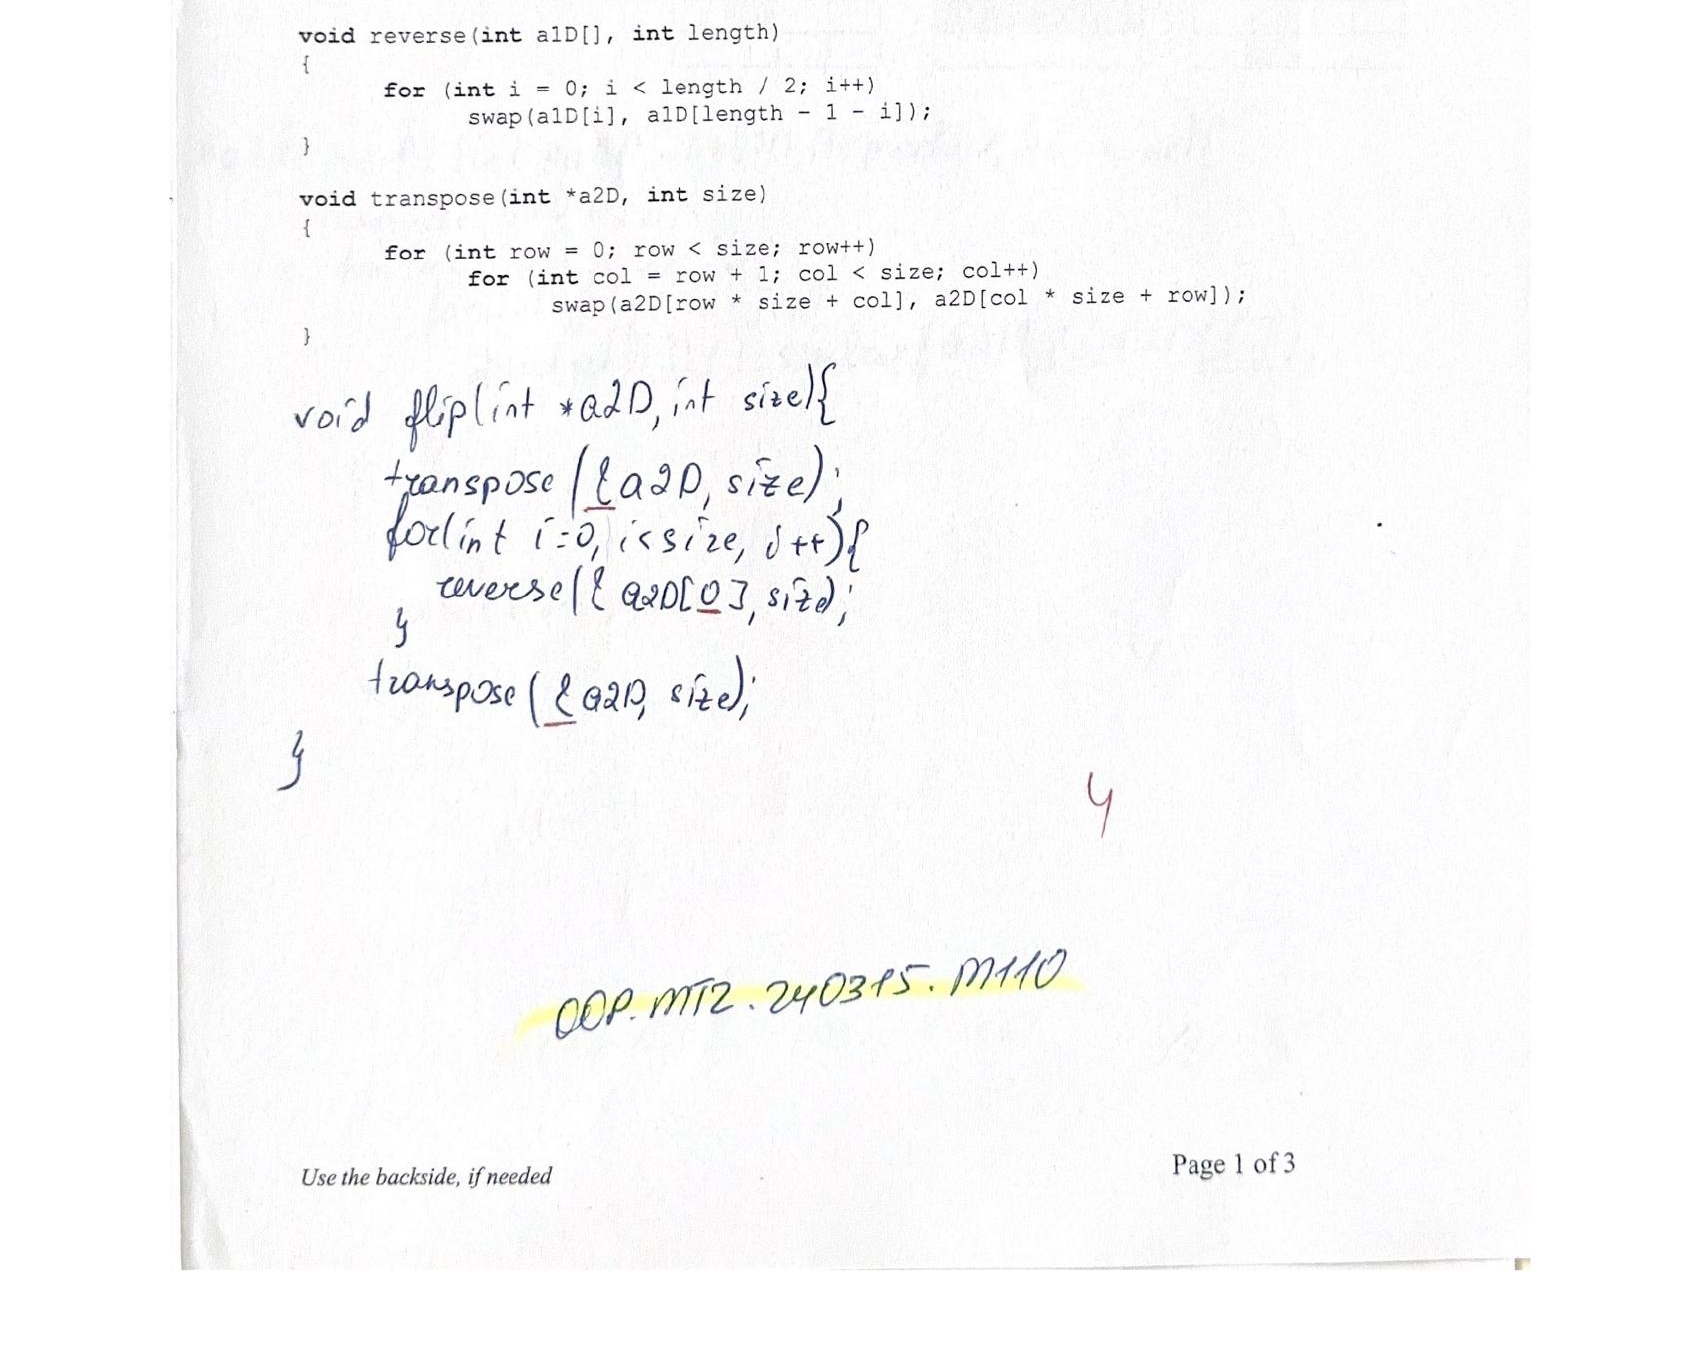 void reverse(int a1D[], int length)
{
for (int i = 0; i < length / 2; i++)
swap(a1D[i], a1D[length - 1 - i]);
}
void transpose(int *a2D, int size)
{
for (int row = 0; row < size; row++)
for (int col = row + 1; col < size; col++)
swap(a2D[row * size + col], a2D[col * size + row]);
}
void flip(int *a2D, int size){
transpose(&a2D, size);
for(int i=0, i<size, i++){
reverse(&a2D[0], size);
}
transpose(&a2D, size);
}
4
OOP.MT2.240315.M110
Use the backside, if needed
Page 1 of 3